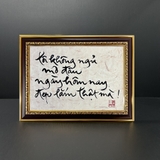 tôi không ngủ
mơ đâu
ngày hôm nay
đẹp lắm thật mà!